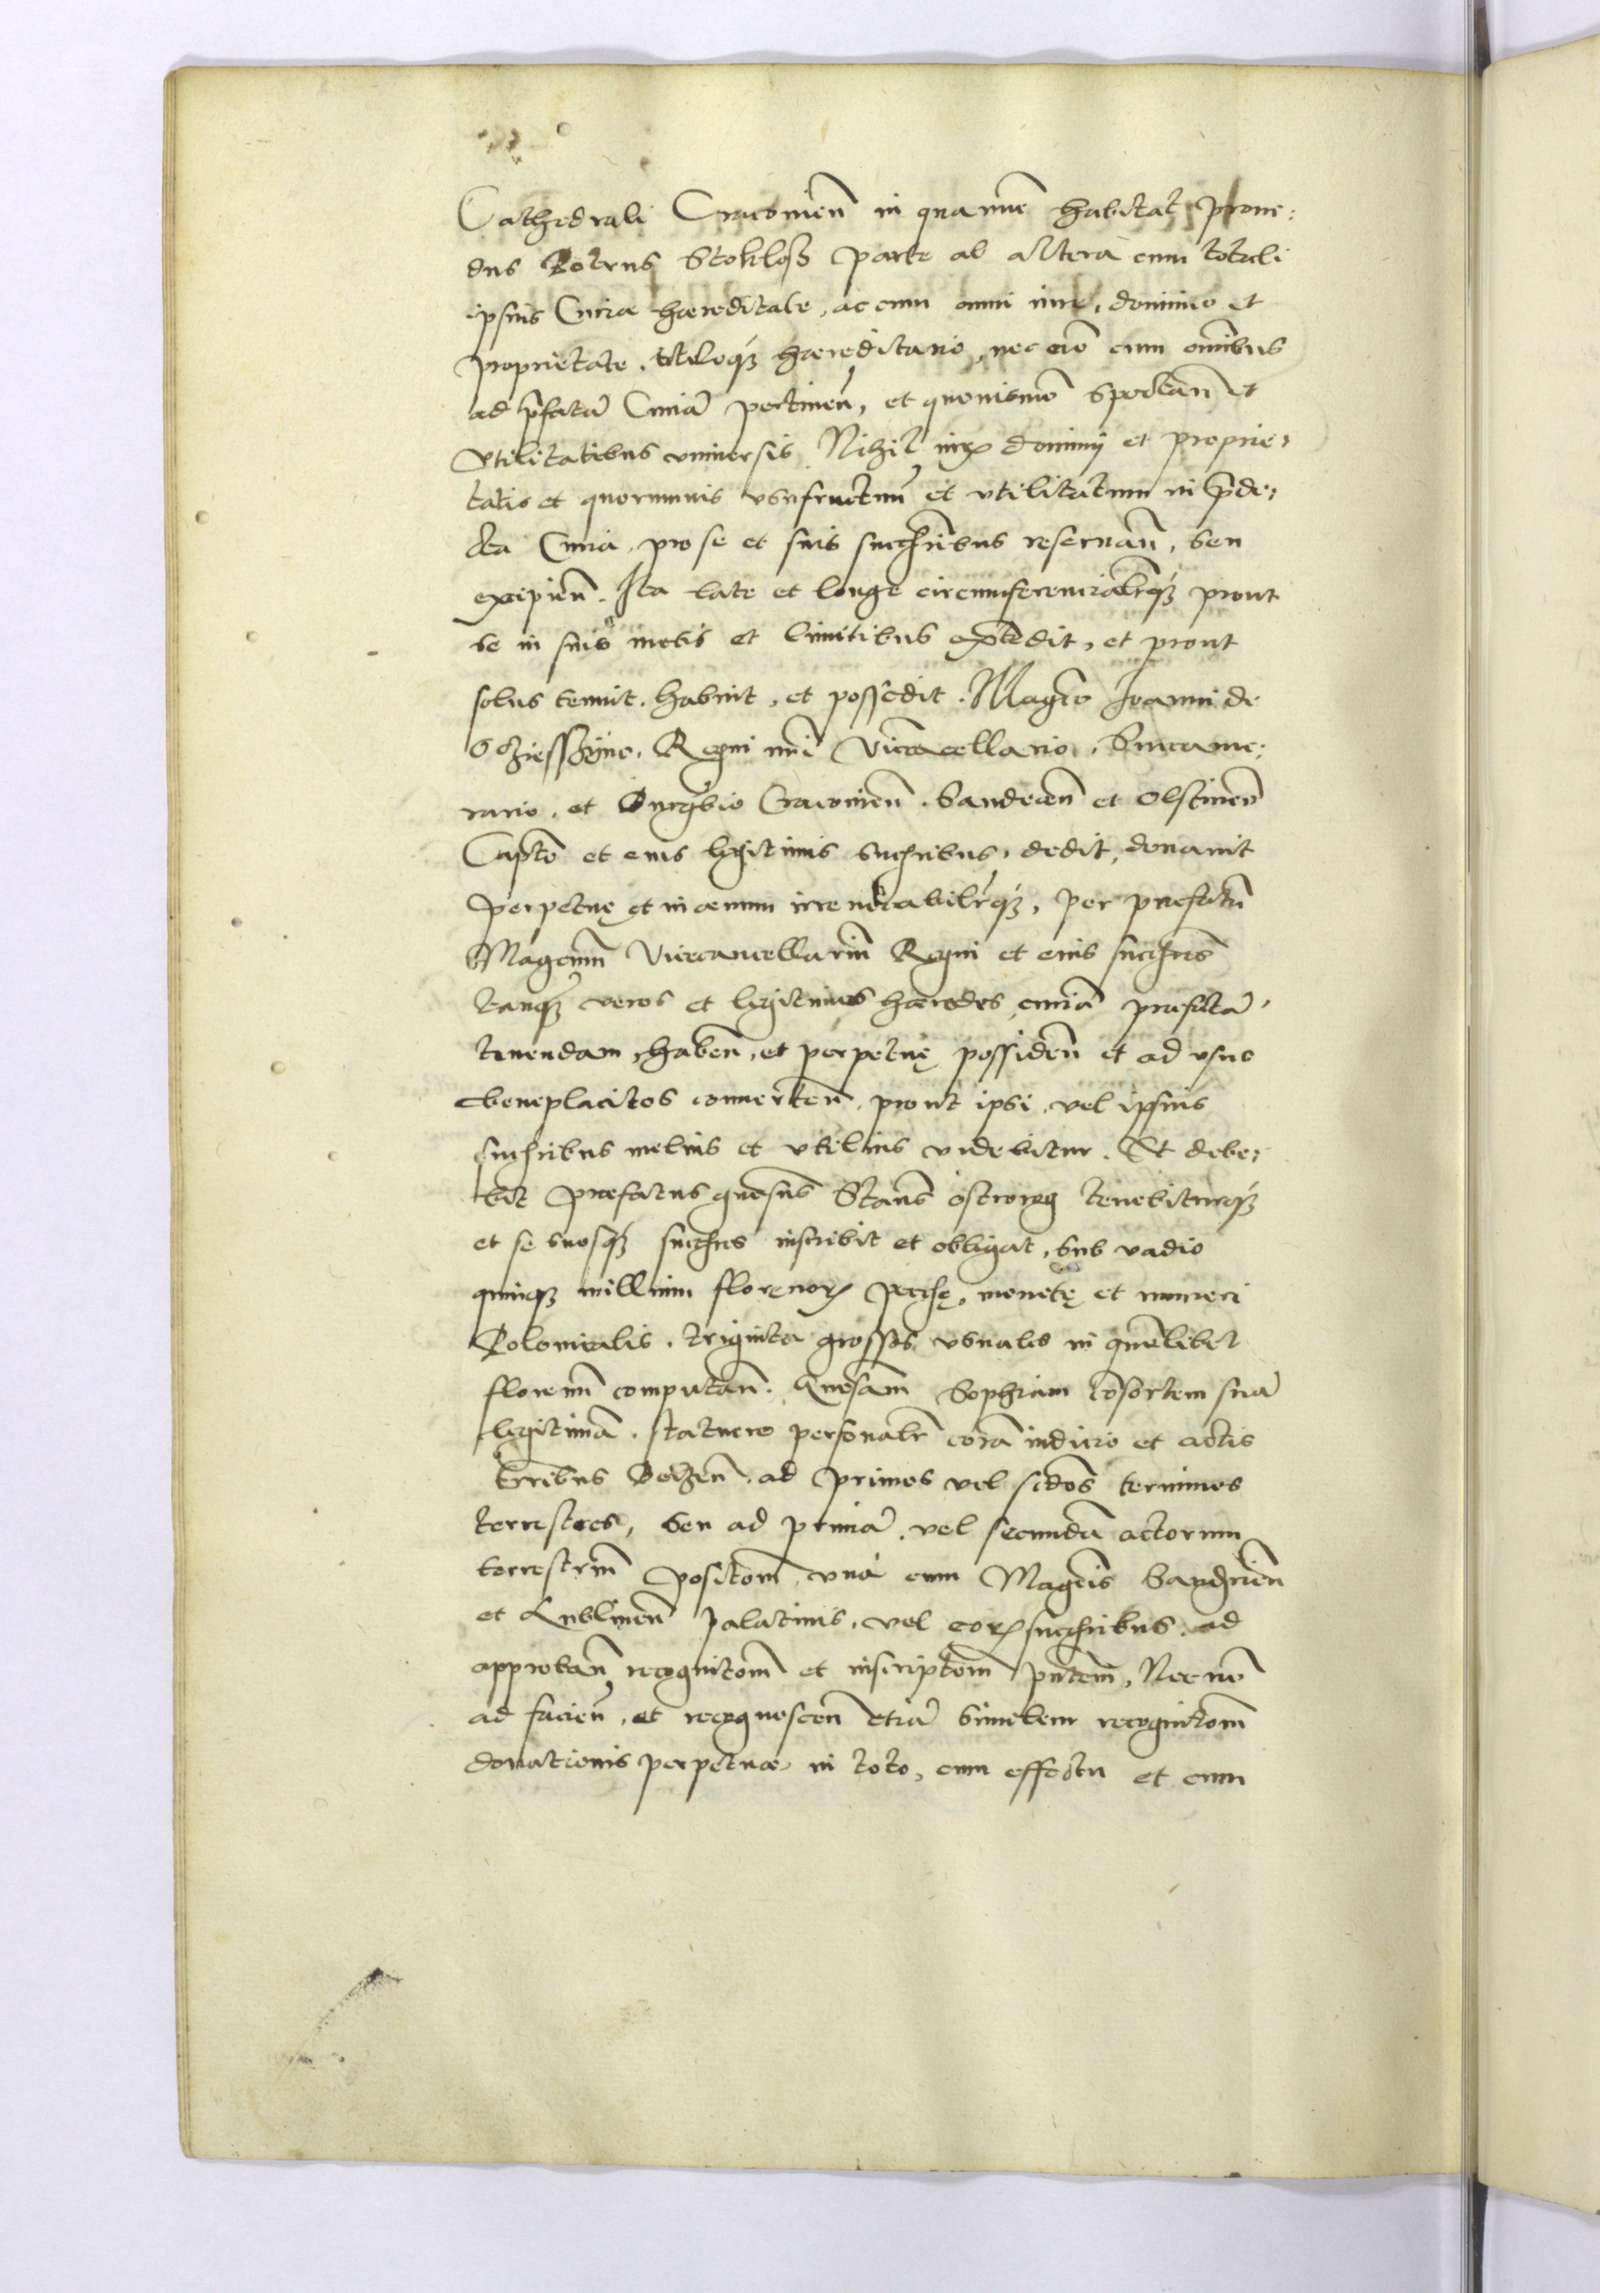 Cathedrali Cracovien̄ in qua nūc habitat prove:
dus Petrus Stokloß parte ab altera cum totali
ipsius Curiæ hæreditate, ac cum omni iure, dominio et
proprietate, titulóq₃ hæreditario, nec nō cum omībus
ad p̄fatā Curiā pertinen̄, et quovismō spectan̄ et
vtilitatibus vniversis Nihil iurꝝ dominij et proprie,
tatis et quorumvis vsufructuū et vtilitatum in p̄de,
cta Curia, pro se et suis succr̄ibus reservan̄, seu
excipien̄. Ita late et longe circumferencialr̄q₃ prout
se in suis metis et limitibus extēdit, et prout
solus tenuit, habuit, et possedit. Magco Joanni de
Ocziessyno, Regni nr̄i Vicecancellario, Succame,
rario, et Burgbio Cracovien̄. Sandecen̄ et Olstinen̄
Captō et eius legitimis succr̄ibus, dedit, donavit
perpetuę et in ævum irrevocabilr̄q₃, per præfatū
Magcum Vicecancellariū Regni et eius succr̄es
tanq₃ veros et legitimos hæredes curiā præfatā
tenendam, haben̄, et perpetuę possiden̄ et ad vsus
beneplacitos converten̄, prout ipsi vel ipsius
succr̄ibus melius et vtilius videbitur. Et debe,
bit præfatus gn̄osus Stan̄s ostrorog tenebiturq₃
et se suosq₃ succr̄es inscribit et obligat, sub vadio
quinq₃ millium florenoꝝ pecūię, monetę et numeri
Polonicalis, triginta grossos vsuales in quēlibet
florenū computan̄. Gn̄osam Sophiam cōsortem suā
legitimā, statuere personalr̄ corā iudicio et actis
terr̄ibus Belzen̄. ad primos vel scdos terminos
terrestres, seu ad primā, vel secundā actorum
terrestriū positōm, vnà cum Magcis Sandomirien̄
et Lublinen̄ Palatinis, vel eoꝝ succr̄ibus, ad
approban̄ recognitōm et inscriptōm pn̄tem, Nec nō
ad facien̄, et recognoscen̄ etiā similem recognitōm
donationis perpetuæ in toto, cum effectu et cum